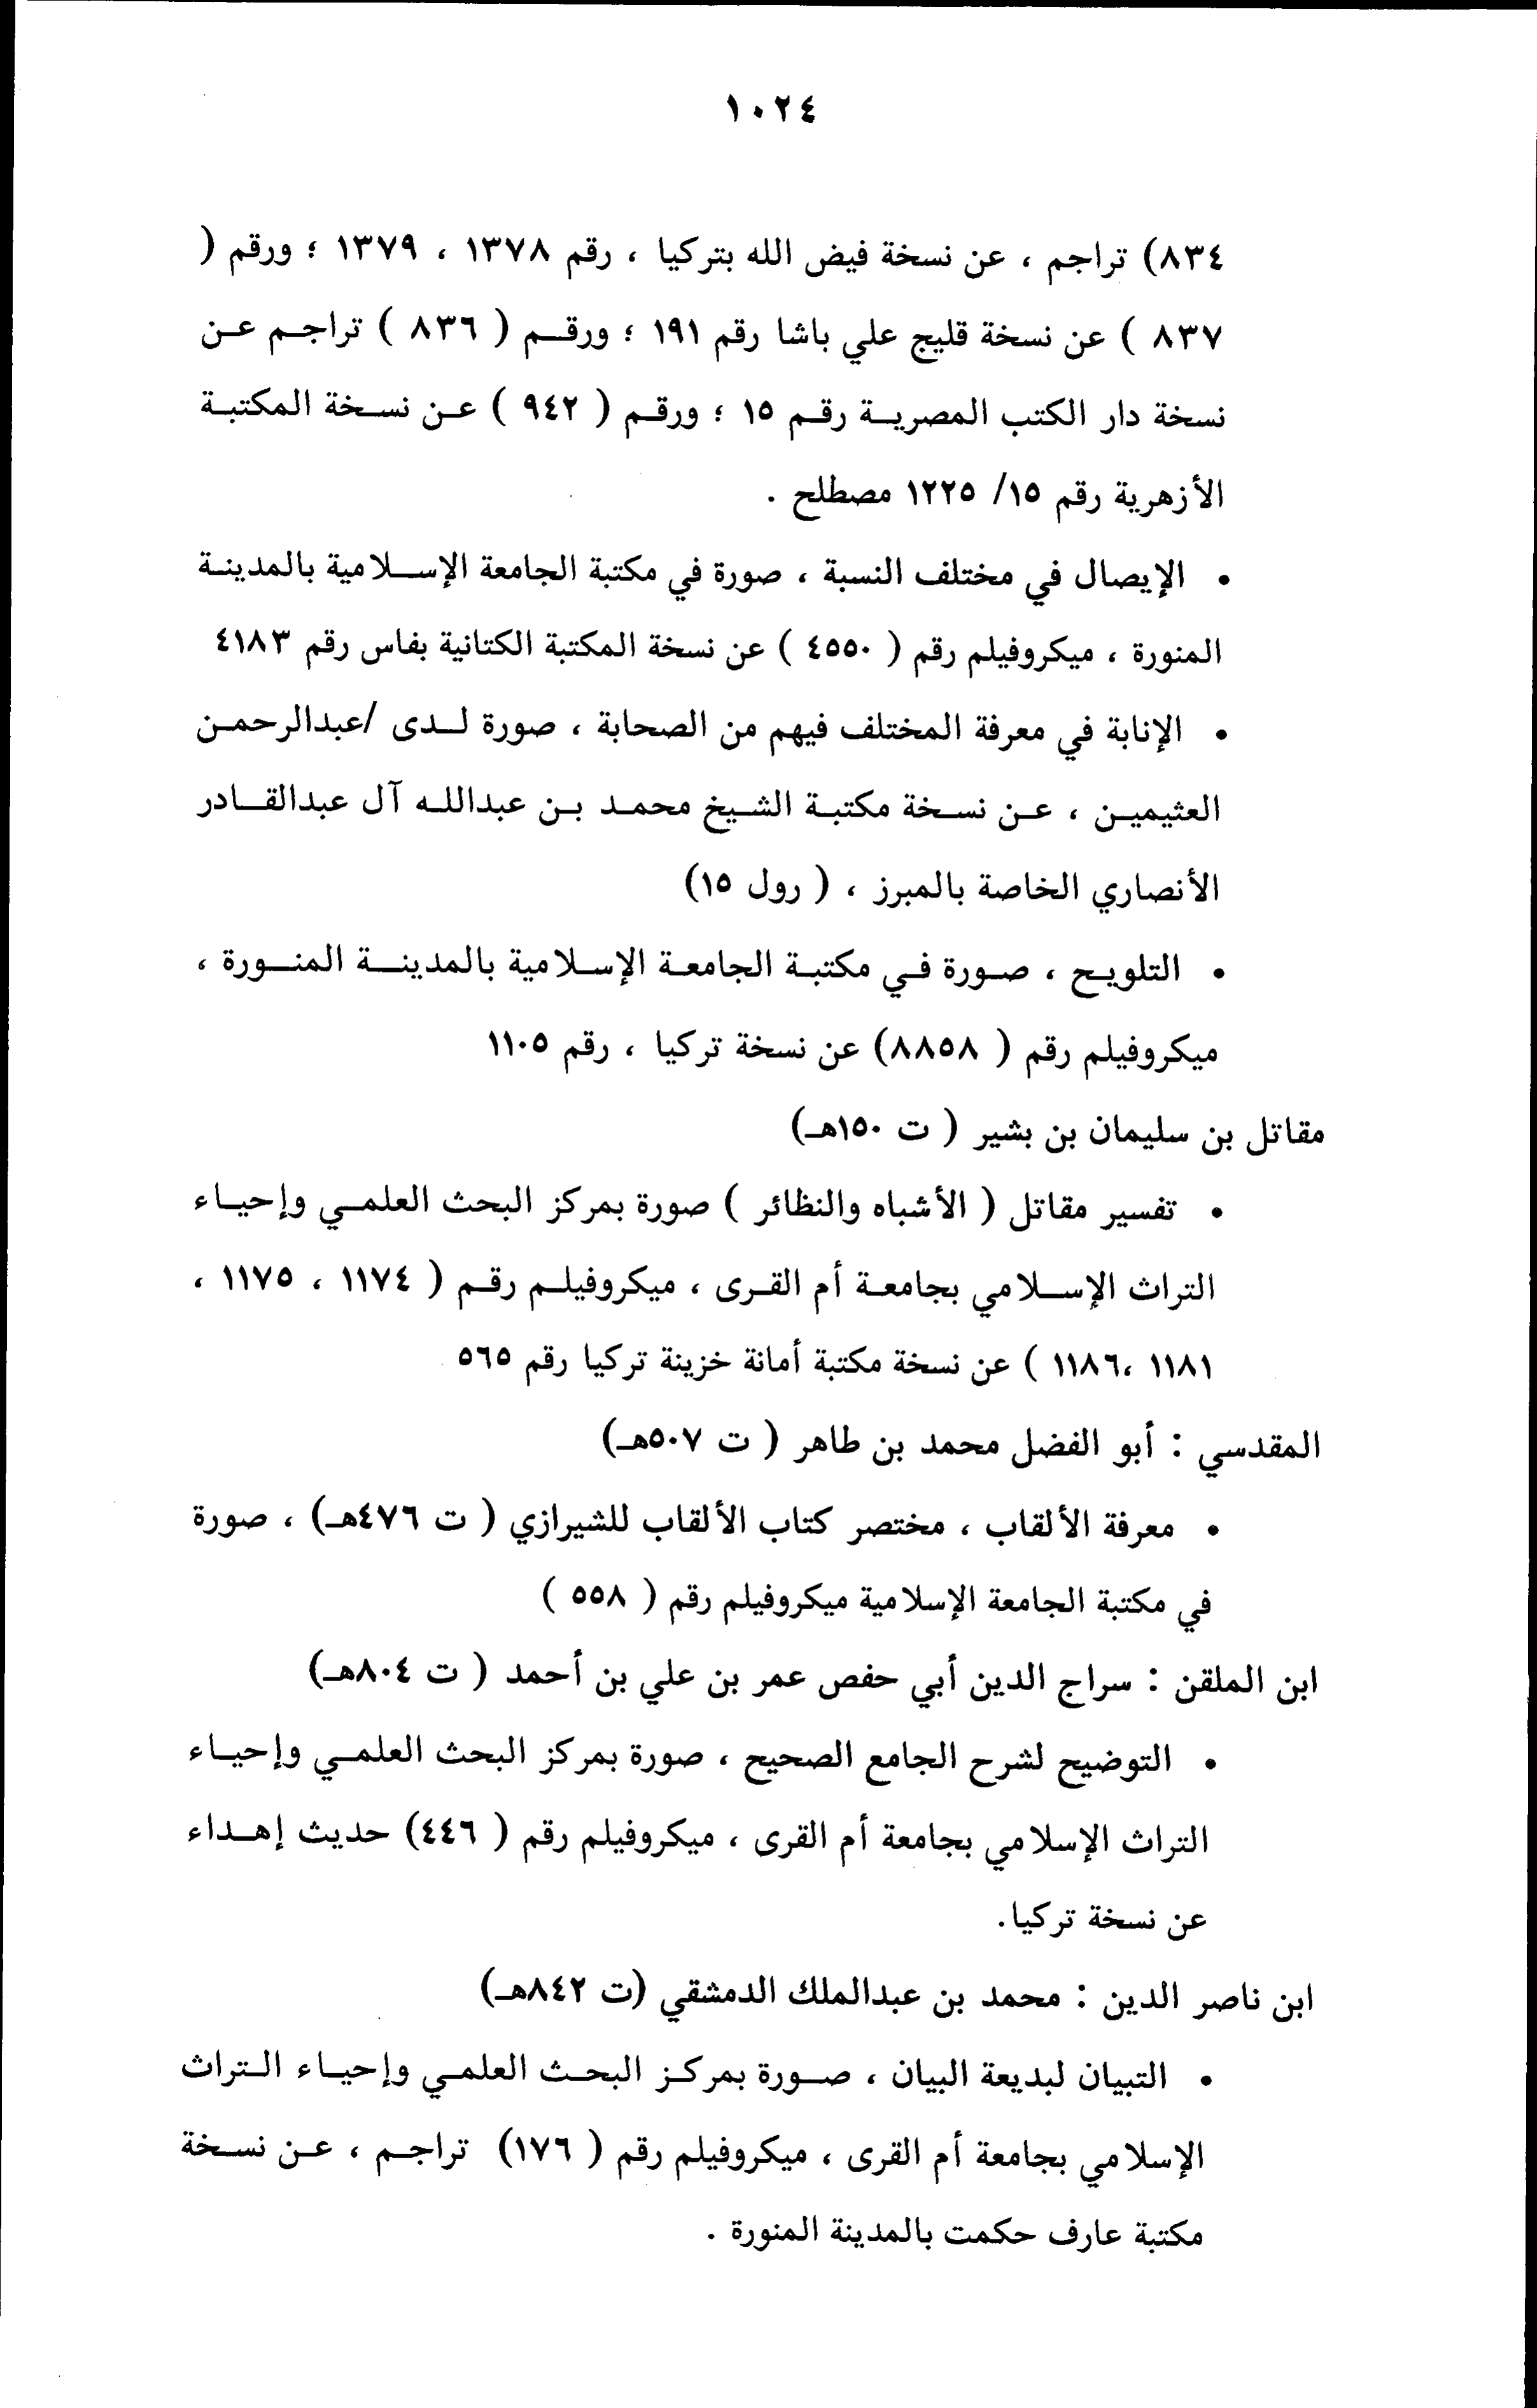 ١٠٢٤
٨٣٤) تراجم ، عن نسخة فيض الله بتركيا ، رقم ١٣٧٨ ، ١٣٧٩ ؛ ورقم (
٨٣٧ ) عن نسخة قليج علي باشا رقم ١٩١ ؛ ورقم ( ٨٣٦ ) تراجم عن
نسخة دار الكتب المصرية رقم ١٥ ؛ ورقم ( ٩٤٢ ) عن نسخة المكتبة
الأزهرية رقم ١٥/ ١٢٢٥ مصطلح .
• الإيصال في مختلف النسبة ، صورة في مكتبة الجامعة الإسلامية بالمدينة
المنورة ، ميكروفيلم رقم ( ٤٥٥٠ ) عن نسخة المكتبة الكتانية بفاس رقم ٤١٨٣
• الإنابة في معرفة المختلف فيهم من الصحابة ، صورة لدى /عبدالرحمن
العثيمين ، عن نسخة مكتبة الشيخ محمد بن عبدالله آل عبدالقادر
الأنصاري الخاصة بالمبرز ، ( رول ١٥)
• التلويح ، صورة في مكتبة الجامعة الإسلامية بالمدينة المنورة ،
ميكروفيلم رقم ( ٨٨٥٨) عن نسخة تركيا ، رقم ١١٠٥
مقاتل بن سليمان بن بشير ( ت ١٥٠هـ)
• تفسير مقاتل ( الأشباه والنظائر ) صورة بمركز البحث العلمي وإحياء
التراث الإسلامي بجامعة أم القرى ، ميكروفيلم رقم ( ١١٧٤ ، ١١٧٥ ،
١١٨١ ،١١٨٦ ) عن نسخة مكتبة أمانة خزينة تركيا رقم ٥٦٥
المقدسي : أبو الفضل محمد بن طاهر ( ت ٥٠٧هـ)
• معرفة الألقاب ، مختصر كتاب الألقاب للشيرازي ( ت ٤٧٦هـ) ، صورة
في مكتبة الجامعة الإسلامية ميكروفيلم رقم ( ٥٥٨ )
ابن الملقن : سراج الدين أبي حفص عمر بن علي بن أحمد ( ت ٨٠٤هـ)
• التوضيح لشرح الجامع الصحيح ، صورة بمركز البحث العلمي وإحياء
التراث الإسلامي بجامعة أم القرى ، ميكروفيلم رقم ( ٤٤٦) حديث إهداء
عن نسخة تركيا.
ابن ناصر الدين : محمد بن عبدالملك الدمشقي (ت ٨٤٢هـ)
• التبيان لبديعة البيان ، صورة بمركز البحث العلمي وإحياء التراث
الإسلامي بجامعة أم القرى ، ميكروفيلم رقم ( ١٧٦) تراجم ، عن نسخة
مكتبة عارف حكمت بالمدينة المنورة .